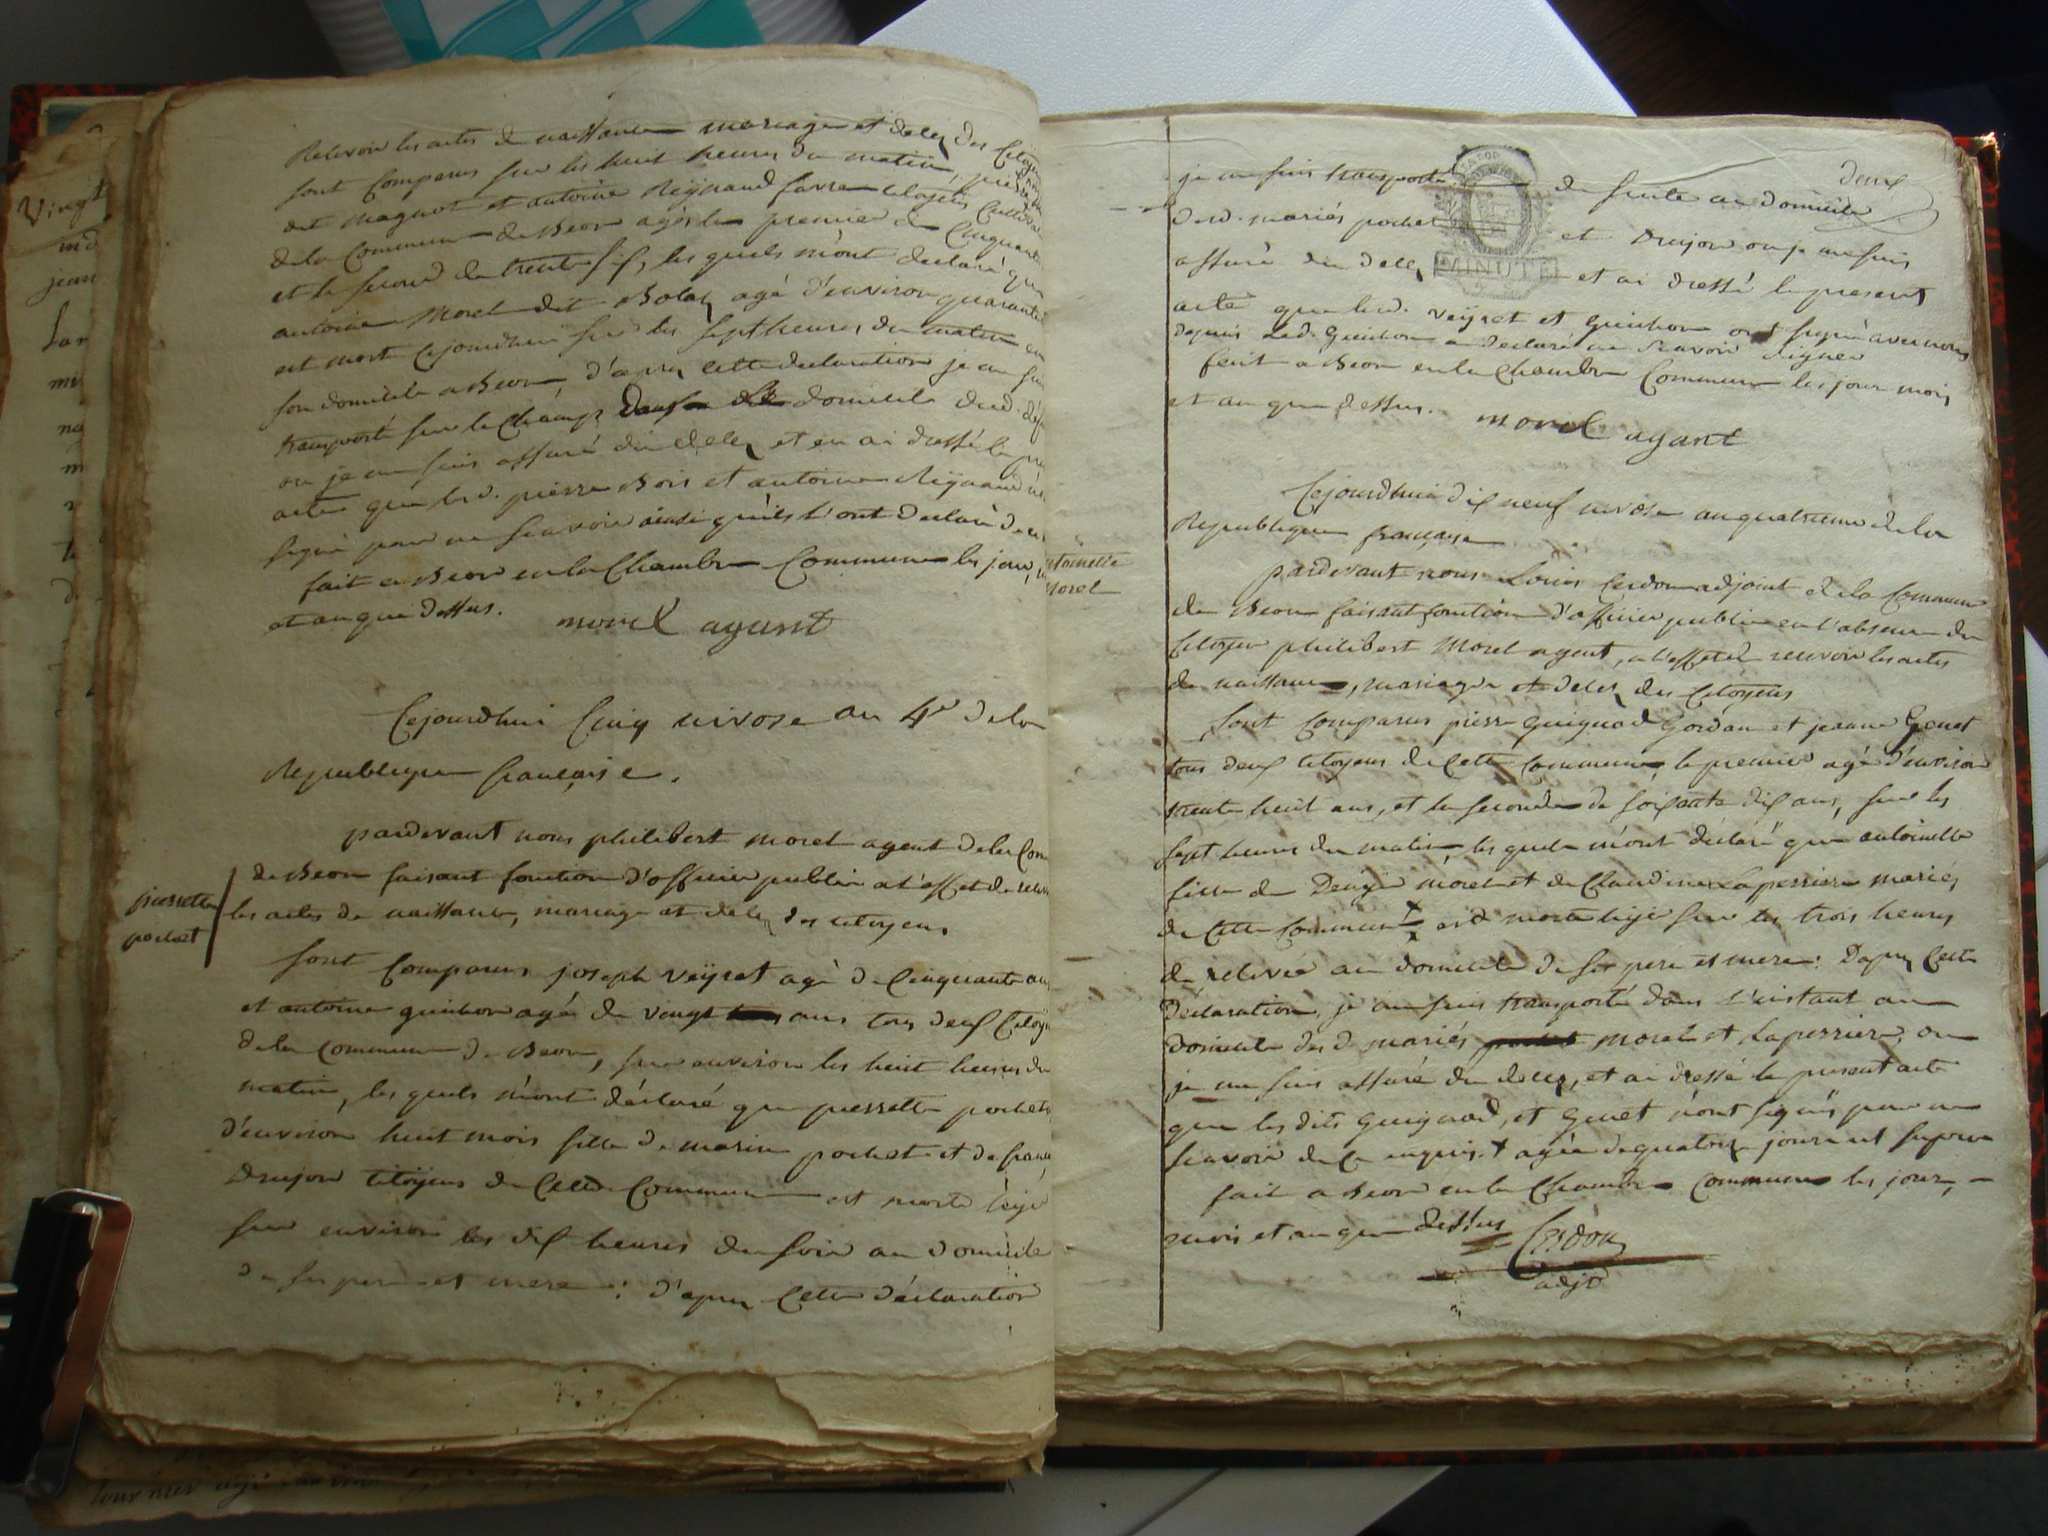 Recevoir les actes de naissance mariage et decès des Citoy
sont comparus sur les huit heures du matin, pierre
dit magnot et antoine Reÿnaud favre citoyens Cultiva
de la Commune de Beon agés le premier de Cinquante
et le second de trente six, les quels m'ont declaré que
antoine Morel dit Bolax agé d'environ quarante
est mort Cejourdhui sur les sept heures du matin en
son domicile a Beon, d'après cette declaration je me suis
transporté sur le Champ dans le domicile dud. déf
ou je me suis assuré du decès et en ai dressé le pré
acte que les d. pierre Bois et antoine Reÿnaud n'
signé pour ne scavoir ainsi qu'ils l'ont declaré de
fait a Beon en la Chambre Commune les jour, m
et an que dessus. morel agant
Cejourdhui Cinq nivose an 4e de la
Republique française.
pardevant nous philibert morel agent de la Com
de Beon faisant fonction d'officier public a l'effet de recev
les actes de naissance, mariage et decès des citoyens
pierrette
pochet
sont comparus joseph veÿret agé de Cinquante an
et antoine guichon agé de vingt ans tous deux Citoÿ
de la commune de Beon, sur environ les huit heures du
matin, les quels m'ont déclaré que pierrette pochet
d'environ huit mois fille de marin pochet et de fran
Drujon citoÿens de Cette Commune est morte hÿer
sur environ les dix heures du soir au domicile
de ses pere et mere : d'après Cette déclaration
deux
je me suis transporté de suite au domicile
desd. mariés pochet et Drujon ou je me suis
assuré du decès et ai dressé le present
MINUTE
acte que lesd. veÿret et guichon ont signé avec nous
depuis led. Guichon a declaré ne scavoir signer
fait a Beon en la Chambre Commune les jour mois
et an que dessus. morel agant
Cejourdhui dix neuf nivose an quatrieme de la
Republique française
antoinette
Morel
pardevant nous Louis Cerdon adjoint de la Commune
de Beon faisant fonction d'officier public en l'absence du
Citoyen philibert Morel agent, a l'effet de recevoir les actes
de naissance, mariage et decès des Citoyens
sont comparus pierre Guignod Gordan et jeanne Genet
tous deux citoyens de Cette commune, le premier agé d'environ
trente huit ans, et la seconde de soixante dix ans, sur les
sept heures du matin, les quels m'ont déclaré que antoinette
fille de Denÿs morel et de Claudine Laperriere mariés
de Cette Commune + est morte hÿer sur les trois heures
de relevée au domicile de ses pere et mere : D'après Cette
déclaration, je me suis transporté dans l'instant au
domicile desd. mariés morel et Laperriere, ou
je me suis assuré du decès, et ai dressé le present acte
que les dits guignod, et genet n'ont signés pour ne
scavoir de ce enquis. + agée de quatorze jours est
fait a Beon en la Chambre Commune les jour,
mois et an que dessus Cerdon
adjt